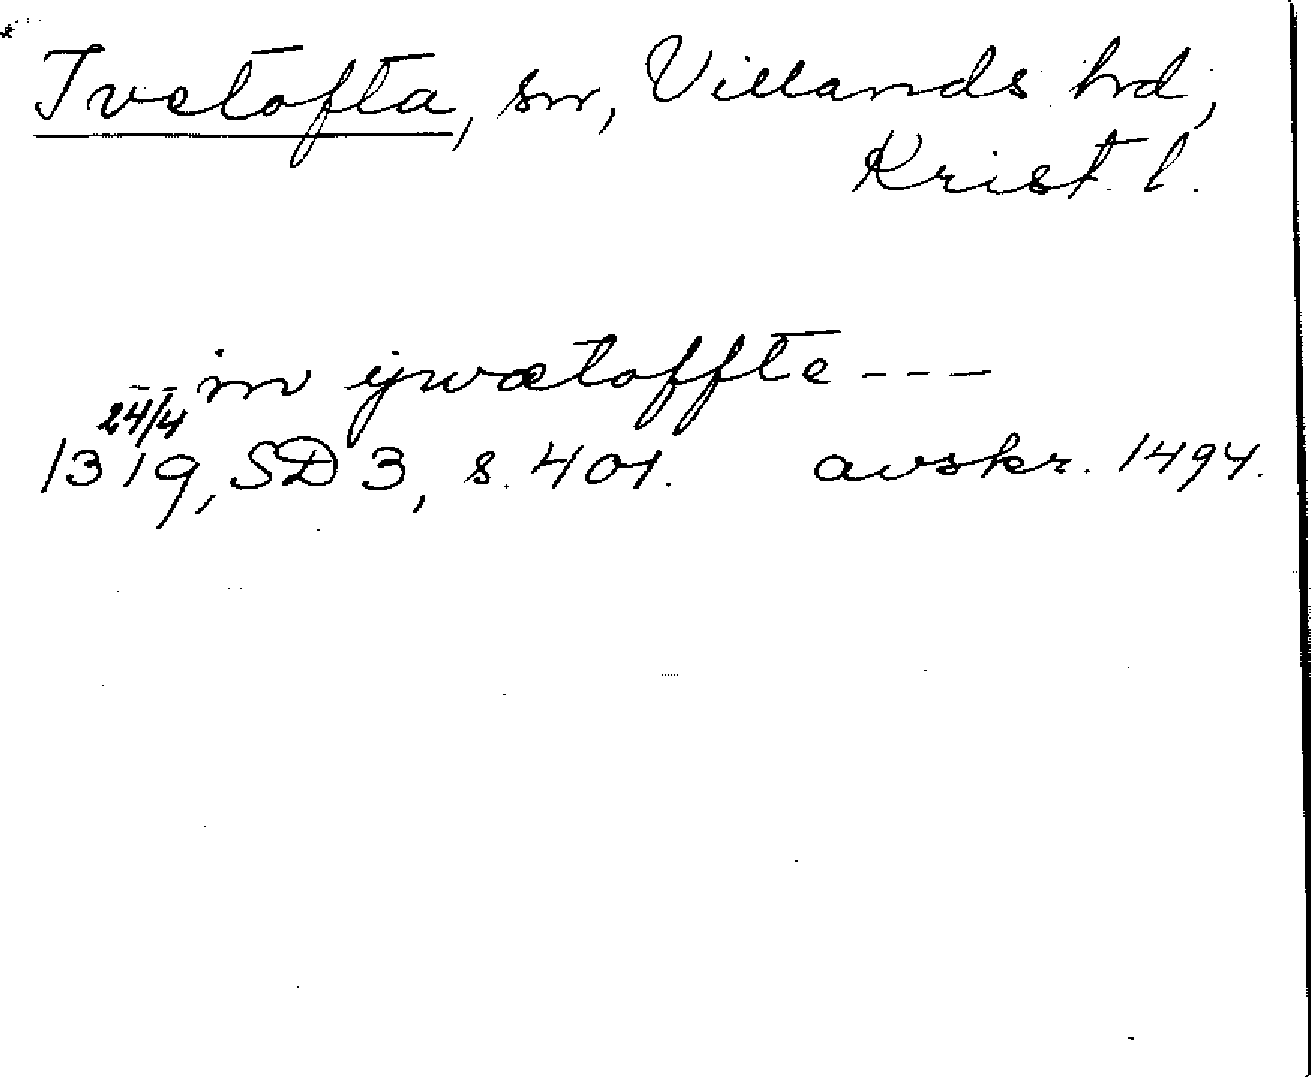 Ivetofta, sn, Villands hd,
Krist. l.
in ywætoffte - - -
24/4
1319, SD 3, s. 401. avskr. 1494.